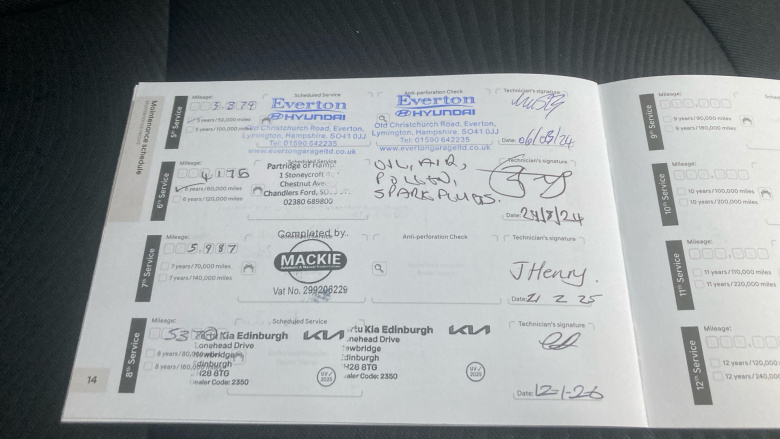 Maintenance schedule
5th Service
Mileage:
5 years/50,000 miles
5 years/100,000
Scheduled Service
Everton
HYUNDAI
Old Christchurch Road, Everton,
Lymington, Hampshire, SO41 0JJ
Tel: 01590 642235
www.evertongarageltd.co.uk
Anti-perforation Check
Everton
HYUNDAI
Old Christchurch Road, Everton,
Lymington, Hampshire, SO41 0JJ
Tel: 01590 642235
www.evertongarageltd.co.uk
Technician's signature
Date: 06/03/24
6th Service
4176
6 years/60,000 miles
6 years/120,000 miles
Scheduled Service
Partridge of Hamp
1 Stoneycroft
Chestnut Ave
Chandlers Ford,
02380 689800
OIL, AIR,
POLLEN,
SPARK PLUGS.
Technician's signature
Date:
7th Service
Mileage:
5,987
7 years/70,000 miles
7 years/140,000 miles
Completed by..
MACKIE
Vat No. 299206229
Anti-perforation Check
Technician's signature
J Henry.
Date: 21 2 25
8th Service
Mileage:
8 years/80,
8 years/160,
Scheduled Service
Kia Edinburgh
Lonehead Drive
Newbridge
Edinburgh
H28 8TG
ealer Code: 2350
KIA
UV 2025
rtu Kia Edinburgh
onehead Drive
ewbridge
dinburgh
H28 8TG
aler Code: 2350
KIA
UV 2025
Technician's signature
Date: 12-1-26
14
9th Service
Mileage:
9 years/90,000 miles
9 years/180,000 miles
10th Service
Mileage:
10 years/100,000
10 years/200,000 miles
11th Service
Mileage:
11 years/110,000 miles
11 years/220,000 miles
12th Service
Mileage:
12 years/120,000
12 years/240,000